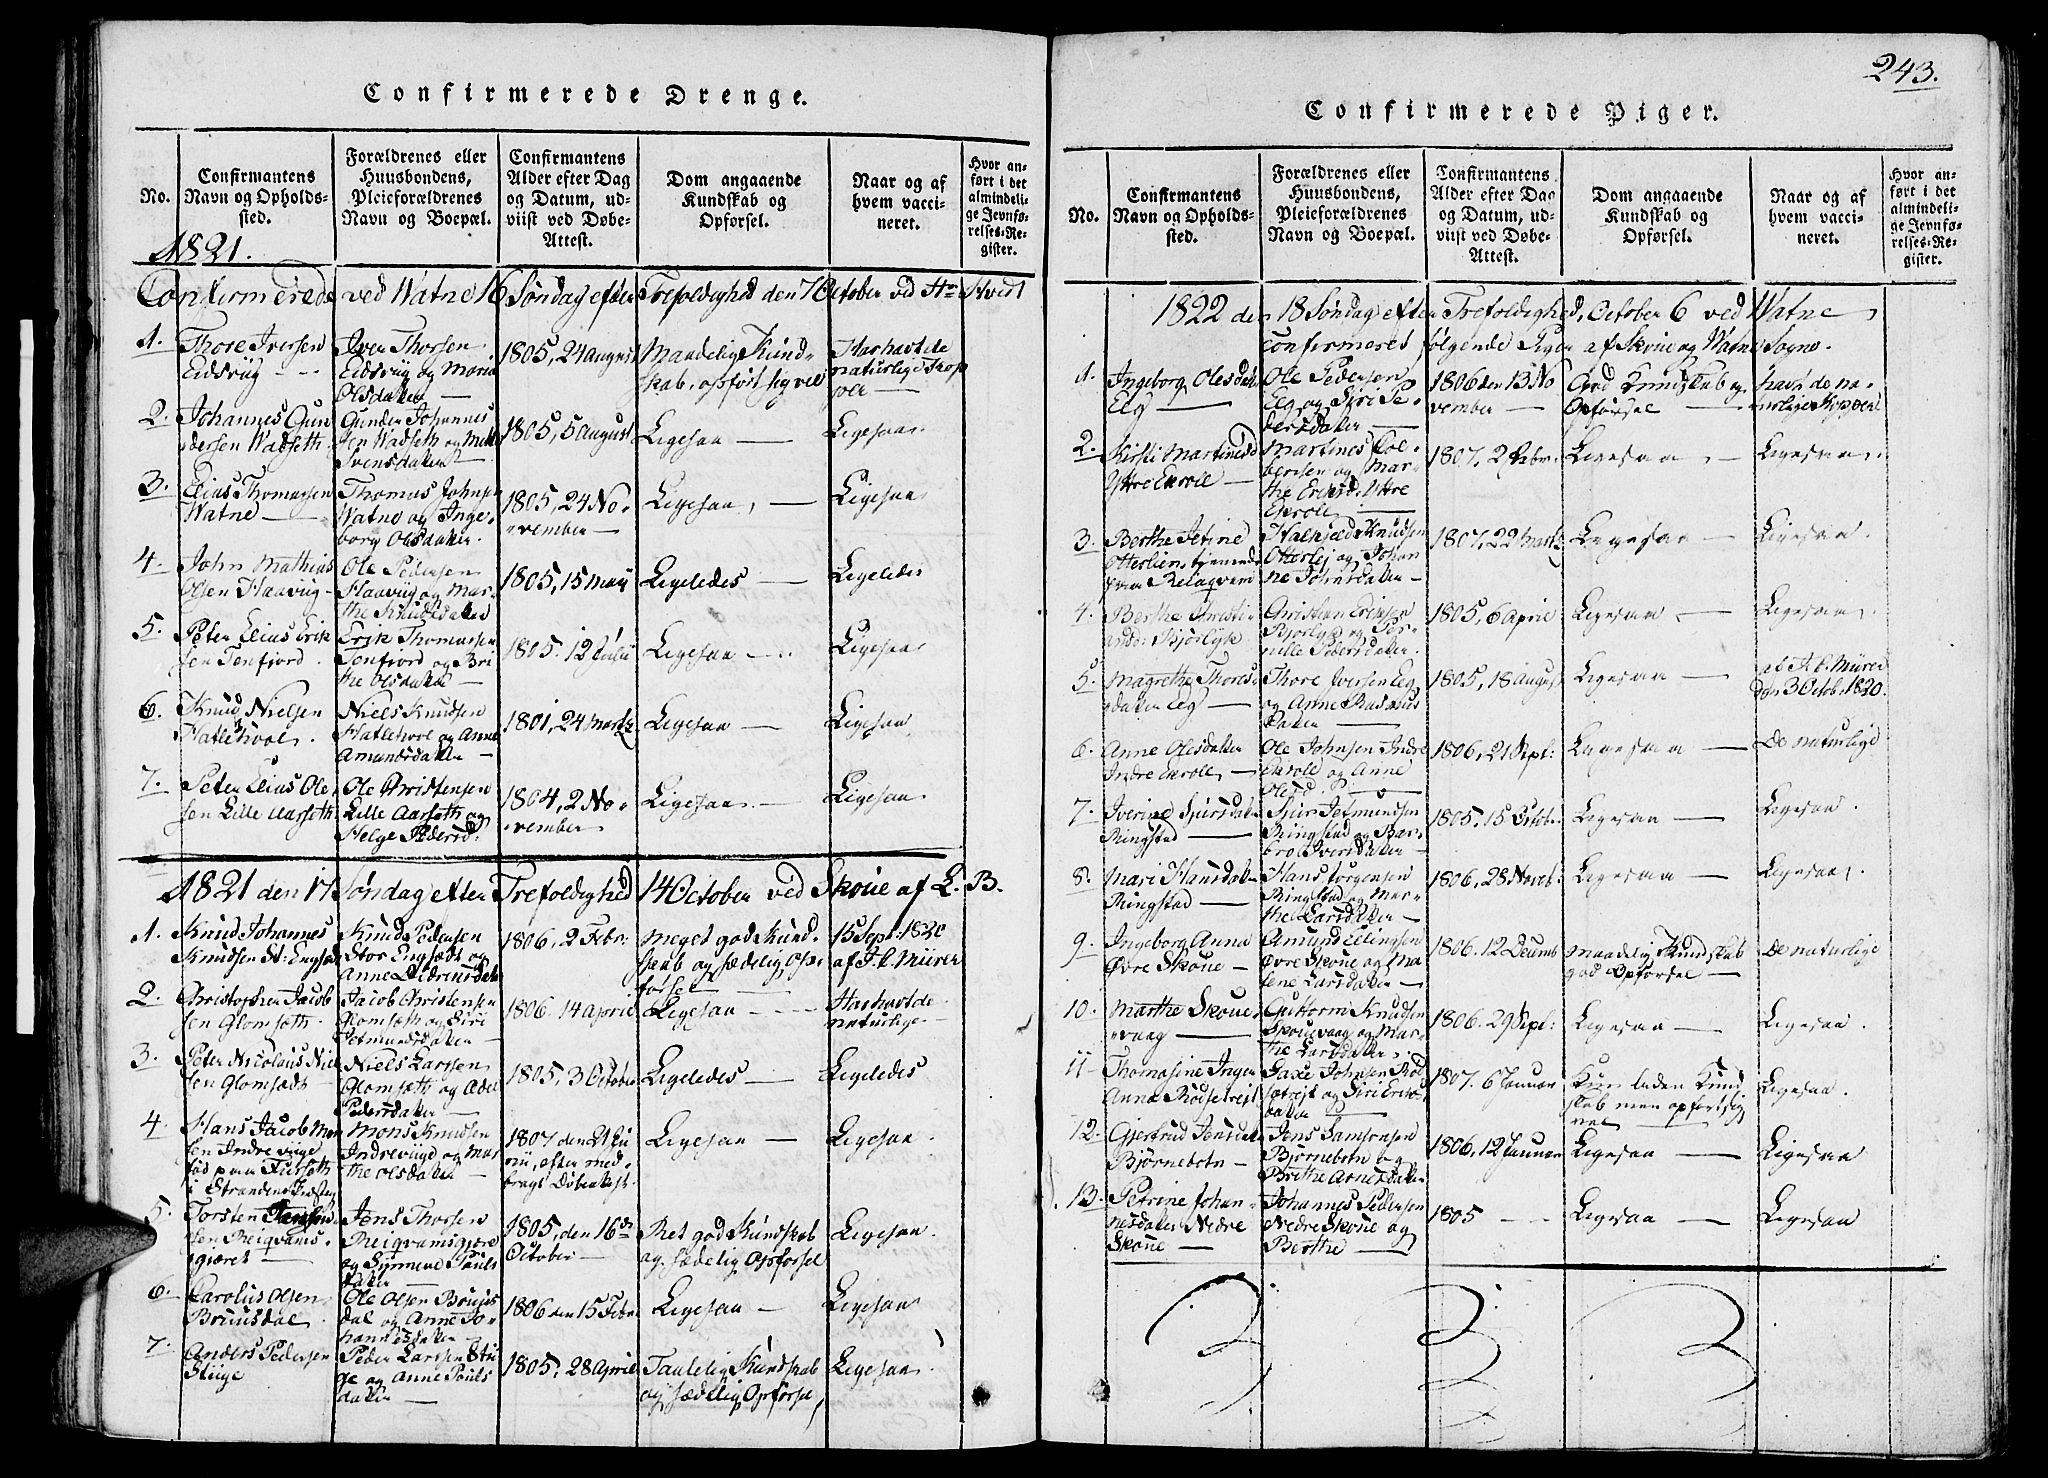 Confirmerede Drenge.
No.
Confirmantens Navn og Opholdssted.
Forældrenes eller Huusbondens, Pleieforældrenes Navn og Boepæl.
Confirmantens Alder efter Dag og Datum, udviist ved Døbe-Attest.
Dom angaaende Kundskab og Opførsel.
Naar og af hvem vaccineret.
Hvor anført i det almindelige Jevnførelses-Register.
1821.
Confirmerede ved Watne 16 Søndag efter Trefoldighed den 7 October ved Hr Hvidt
1. Thore Iversen Eidsviig | Iver Thorsen Eidsviig og Maria Olsdatter | 1805, 24 August | Maadelig Kundskab, opført sig vel | Har havt de naturlige Kopper
2. Johannes Gundersen Wadseth | Gunder Johannessen Wadseth og Svensdatter | 1805, 5 August | Ligesaa | Ligesaa
3. Elias Thomassen Watne | Thomas Johnsen Watne og Ingeborg Olsdatter | 1805, 24 November | Ligesaa | Ligesaa
4. John Mathias Olsen Haavug | Ole Pedersen Haavug og Marthe Knudsdatter | 1805, 15 Maii | Ligeledes | Ligeledes
5. Peter Elias Eriksen Tenfjord | Erik Thomassen Tenfjord og Brithe Olsdatter | 1805. 12 Julii | Ligesaa | Ligesaa
6. Knud Nielsen Hatlehoel | Niels Knudsen Hatlehoel og Anne Amundsdatter | 1801, 24 Martz | Ligesaa | Ligesaa
7. Peter Elias Olsen Lille Aarseth | Ole Christensen Lille Aarseth og Helge Pedersd: | 1804, 2 November | Ligesaa | Ligesaa
1821 den 17 Søndag efter Trefoldighed 14 October ved Skoue af L. B.
1. Knud Johannes Knudsen St: Engsæt | Knud Pedersen Stor Engsædt og Anne | 1806, 2 Febr: | Meget god Kundskab og sædelig Opførsel | 15 Sept: 1820 af F. C. Mürer
2. Christopher Jacobsen Glomseth | Jacob Christensen Glomseth og Siri Jetmundsdatter | 1806. 14 April | Ligesaa | Har havt de naturlige
3. Peter Nicolaus Nielsen Glomsæth | Niels Larssen Glomsæth og Pedersdatter | 1805, 3 October | Ligeledes | Ligeledes
4. Hans Jacob Monsen Indre viige fød paa Furseth i Strandens | Mons Knudsen Indreviigd og Marthe Olsdatter | 1807 den 21 Junii, efter medbragt Døbeattest. | Ligesaa | Ligesaa
5. Torsten Jenssen Reiqvamsgjæret | Jens Thorsen Reiqvamsgjære og Synneve Poulsdatter | 1805, den 16de October | Ret god Kundskab og sædelig Opførsel | Ligesaa
6. Carolus Olsen Bruusdal | Ole Olsen Bruusdal og Anne Johannesdatter | 1806 den 15 Febr | Ligesaa | Ligesaa
7. Anders Pedersen Stiige | Peder Larssen Stiige og Anne Poulsdatter | 1805, 28 April | Taalelig Kundskab og sædelig Opførsel | Ligesaa
243.
Confirmerede Piger.
No.
Confirmantens Navn og Opholdssted.
Forældrenes eller Huusbondens, Pleieforældrenes Navn og Boepæl.
Confirmantens Alder efter Dag og Datum, udviist ved Døbe-Attest.
Dom angaaende Kundskab og Opførsel.
Naar og af hvem vaccineret.
Hvor anført i det almindelige Jevnførelses-Register.
1822 den 18 Søndag efter Trefoldighed, October 6 ved Watne
confirmeret følgende Piger af Skoue og Watne Sogne.
1. Ingeborg Olesdatter Elg | Ole Pedersen Elg og Siri Pedersdatter | 1806 den 13 November | God Kundskab og Opførsel | havt de naturlige Kopper
2. Kirsti Martinesd Yttre Ekroll | Martines Colbensen og Marthe Eriksd. Yttre Ekroll | 1807, 2 Febr. | Ligesaa | Ligesaa
3. Berthe Jetine Otterlien, tjenende paa Relaqvam | Halkjæd Knudsen Otterlej og Johanne Johnsdatter | 1807, 22 Martz | Ligesaa | Ligesaa
4. Berthe Christiansd: Bjørlyk | Christian Bjorlyk og Pernille Pedersdatter | 1805, 6 April | Ligesaa | Ligesaa
5. Magrethe Thoresdatter Elg | Thore Iversen Elg og Anne Rasmusdatter | 1805, 18 August | Ligesaa | af F. C. Mürer den 3 Octob. 1820.
6. Anne Olesdatter Indre Ekroll | Ole Johnsen Indre Ekroll og Anne Olesd. | 1806, 21 Sept: | Ligesaa | De naturlige
7. Iverine Sjursdatter Ringstad | Sjur Jetmundsen Ringstad og Barbro Iversdatter | 1805. 15 Octob: | Ligesaa | Ligesaa
8. Mari Hansdatter Ringstad | Hans Jørgensen Ringstad og Marthe Larsdatter | 1806, 28 Noveb: | Ligesaa | Ligesaa
9. Ingeborg Anna Øvre Skoue | Amund Ellingsen Øvre Skoue og Malene Larsdatter | 1806. 12 Decemb | Maadelig Kundskab god Opførsel | De naturlige
10. Marthe Skouevaag | Guttorm Knudsen Skouevaag og Marthe Larsdatter | 1806. 29 Sept: | Ligesaa | Ligesaa
11 Thomasine Inger Anna Rødsetrejt | Saxe Johnsen Rødsætrejt og Siri Eriksdatter | 1807. 6 Januar | Kun liden Kundskab men opført sig vel | Ligesaa
12. Gjertrud Jensdat Bjørnebotn | Jens Samsonsen Bjørnebotn og Brithe Arnesdatter | 1806. 12 Januar | Ligesaa | Ligesaa
13. Petrine Johannesdatter Nedre Skoue | Johannes Pedersen Nedre Skoue og Berthe | 1805 | Ligesaa | Ligesaa